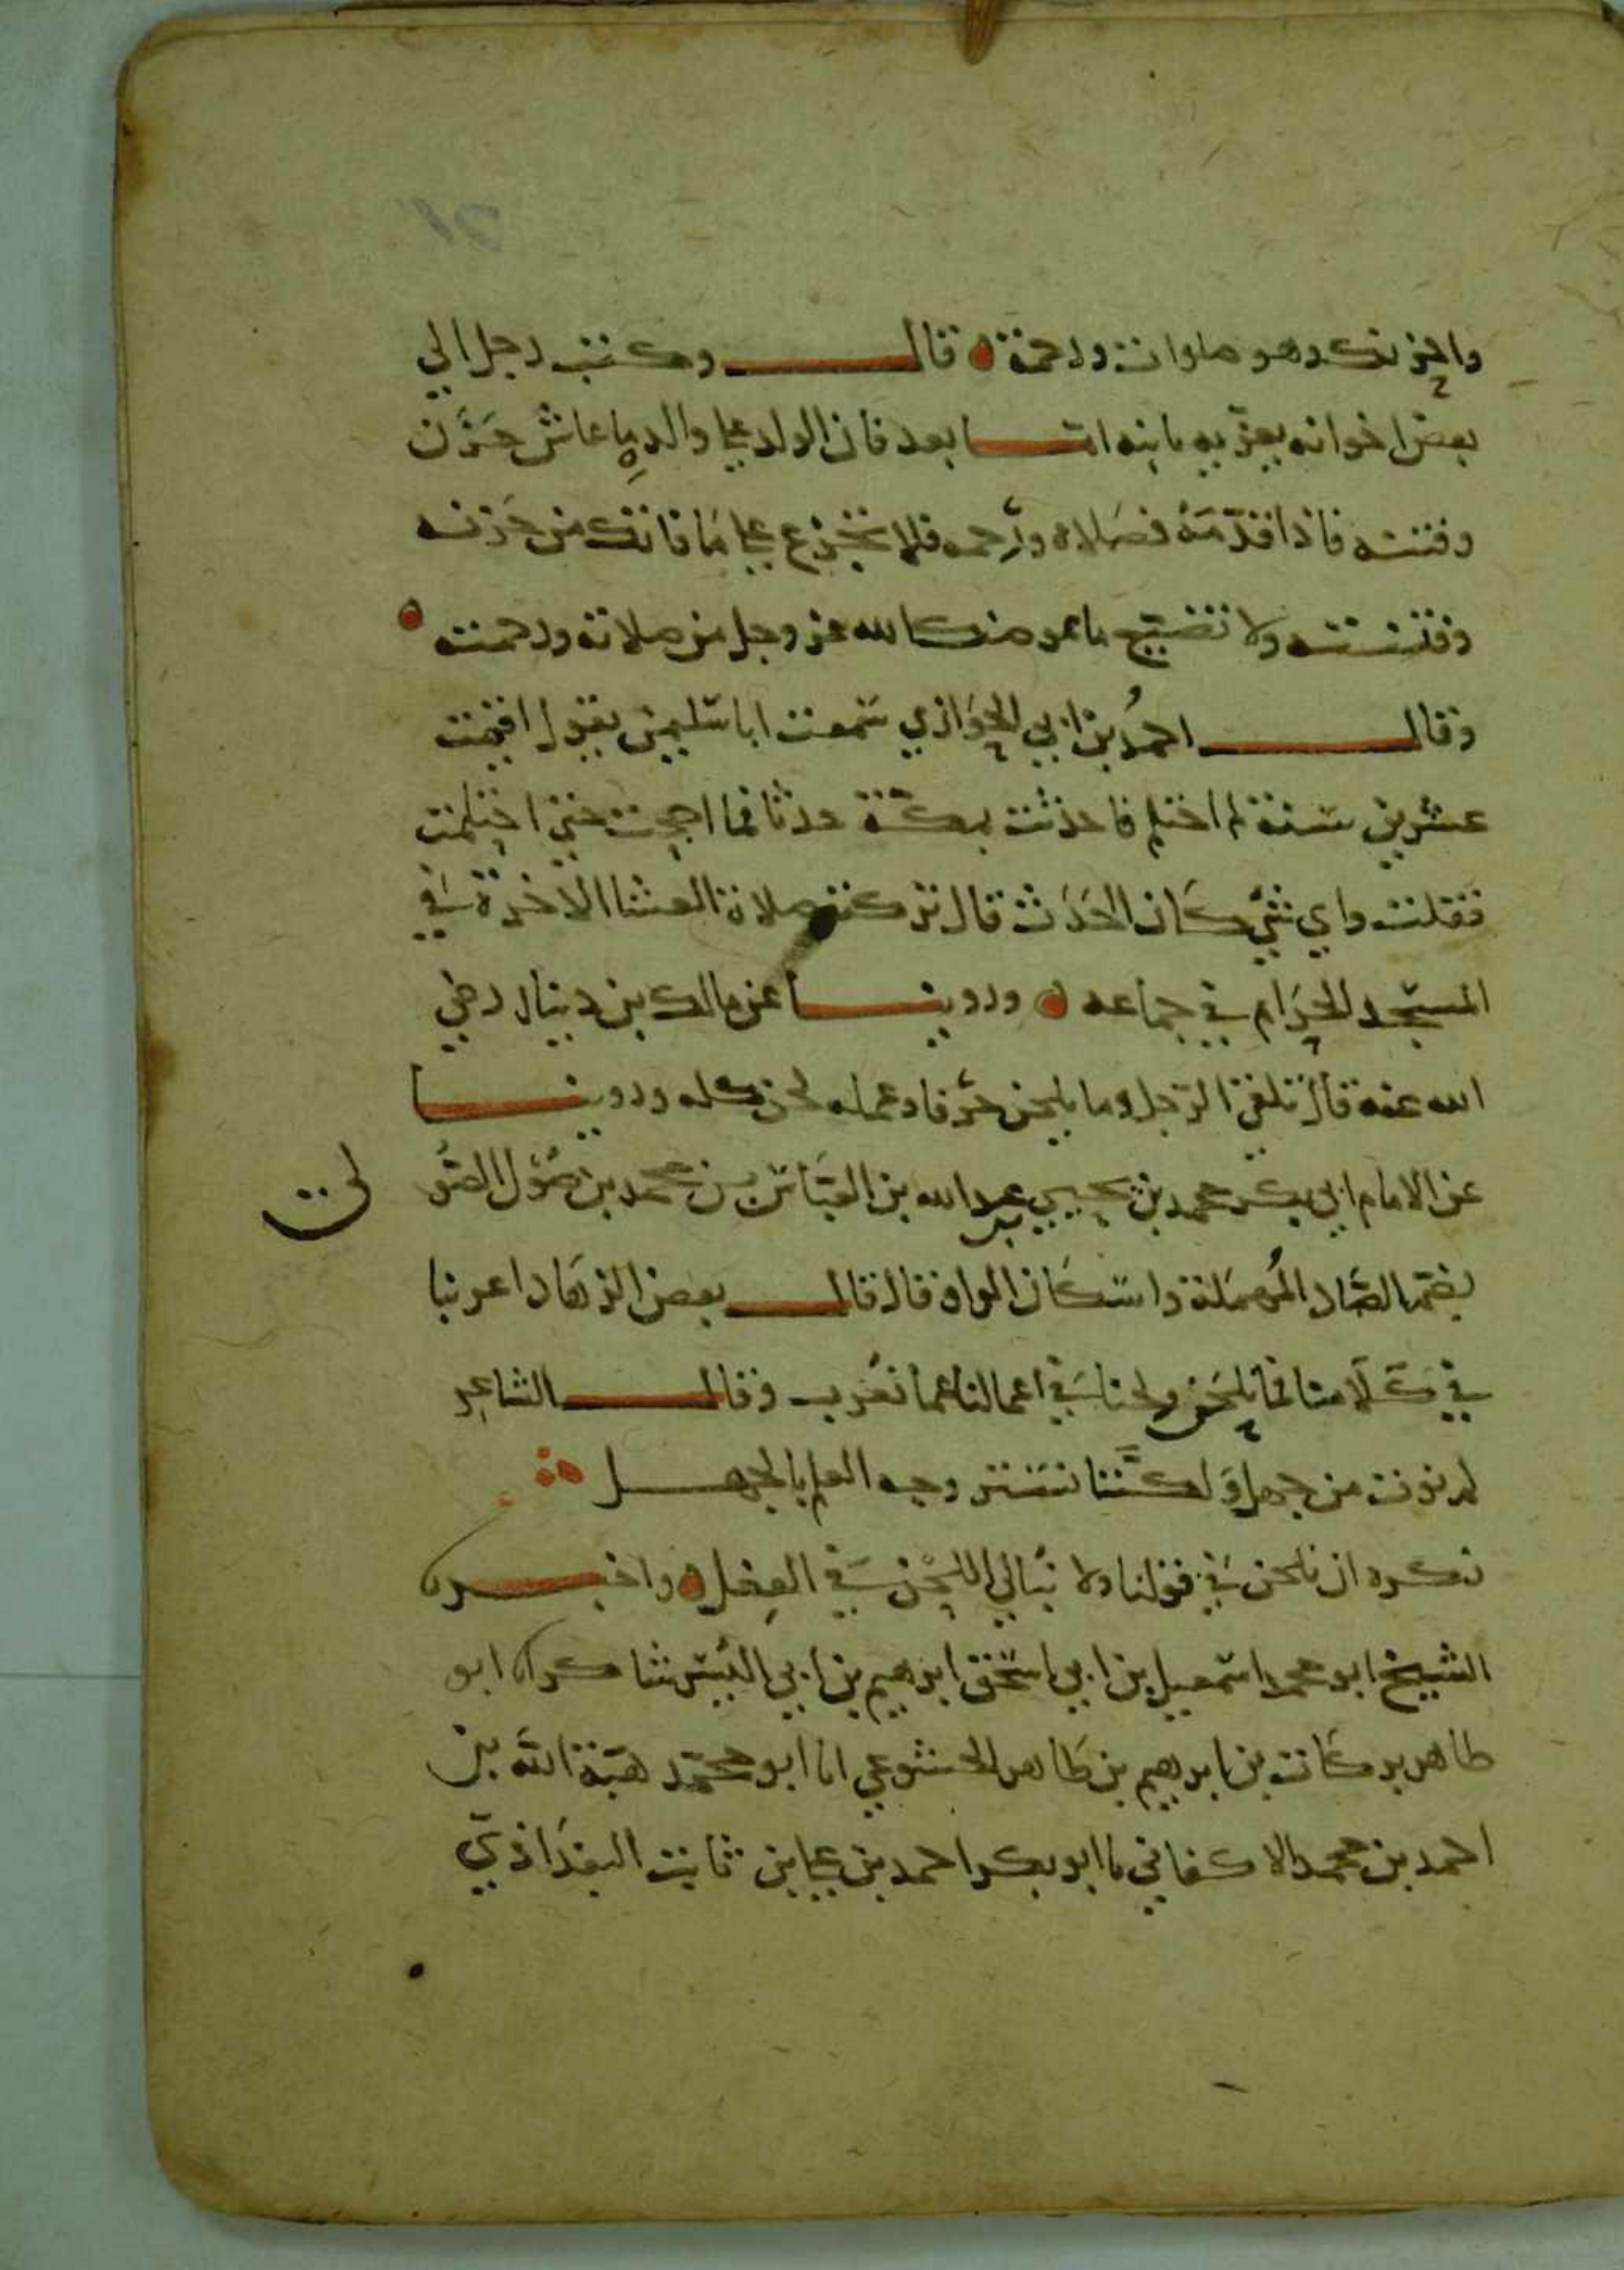 واحزنك وهو صلوات ورحمة قال وكتب رجل الي
بعض اخوانه يعزيه بابنه اما بعد فان الولد علي والده ما عاش حزن
وفتنه فاذا قدمه فصلاه ورحمه فلا تجزع علي ما فاتك من حزنه
وفتنته ولا تضيع ما عوضك الله عز وجل من صلاته ورحمته
وقال احمد بن ابي الحواري سمعت ابا سليمن يقول اقمت
عشرين سنة لم احتلم فاحدثت بمكة حدثا فما اصبحت حتي احتلمت
فقلت واي شي كان الحدث قال تركت صلاة العشا الاخرة في
المسجد الحرام في جماعه وروينا عن مالك بن دينار رضي
الله عنه قال تلقي الرجل وما يلحن حرفا وعمله لحن كله وروينا
عن الامام ابي بكر محمد بن يحيي بن عبد الله بن العباس بن محمد بن صول الصو
لي
بضم الصاد المهملة واسكان الواو قال قال بعض الزهاد اعربنا
في كلامنا فما نلحن ولحنا في اعمالنا فما نعرب وقال الشاعر
لم نوت من جهل ولكننا نستر وجه العلم بالجهل
نكره ان نلحن في قولنا ولا نبالي اللحن في الفعل واخبرنا
الشيخ ابو محمد اسمعيل بن ابي اسحق ابرهيم بن ابي اليسر شاكر انا ابو
طاهر بركات بن ابرهيم بن طاهر الخشوعي انا ابو محمد هبة الله بن
احمد بن محمد الاكفاني نا ابو بكر احمد بن علي بن ثابت البغدادي